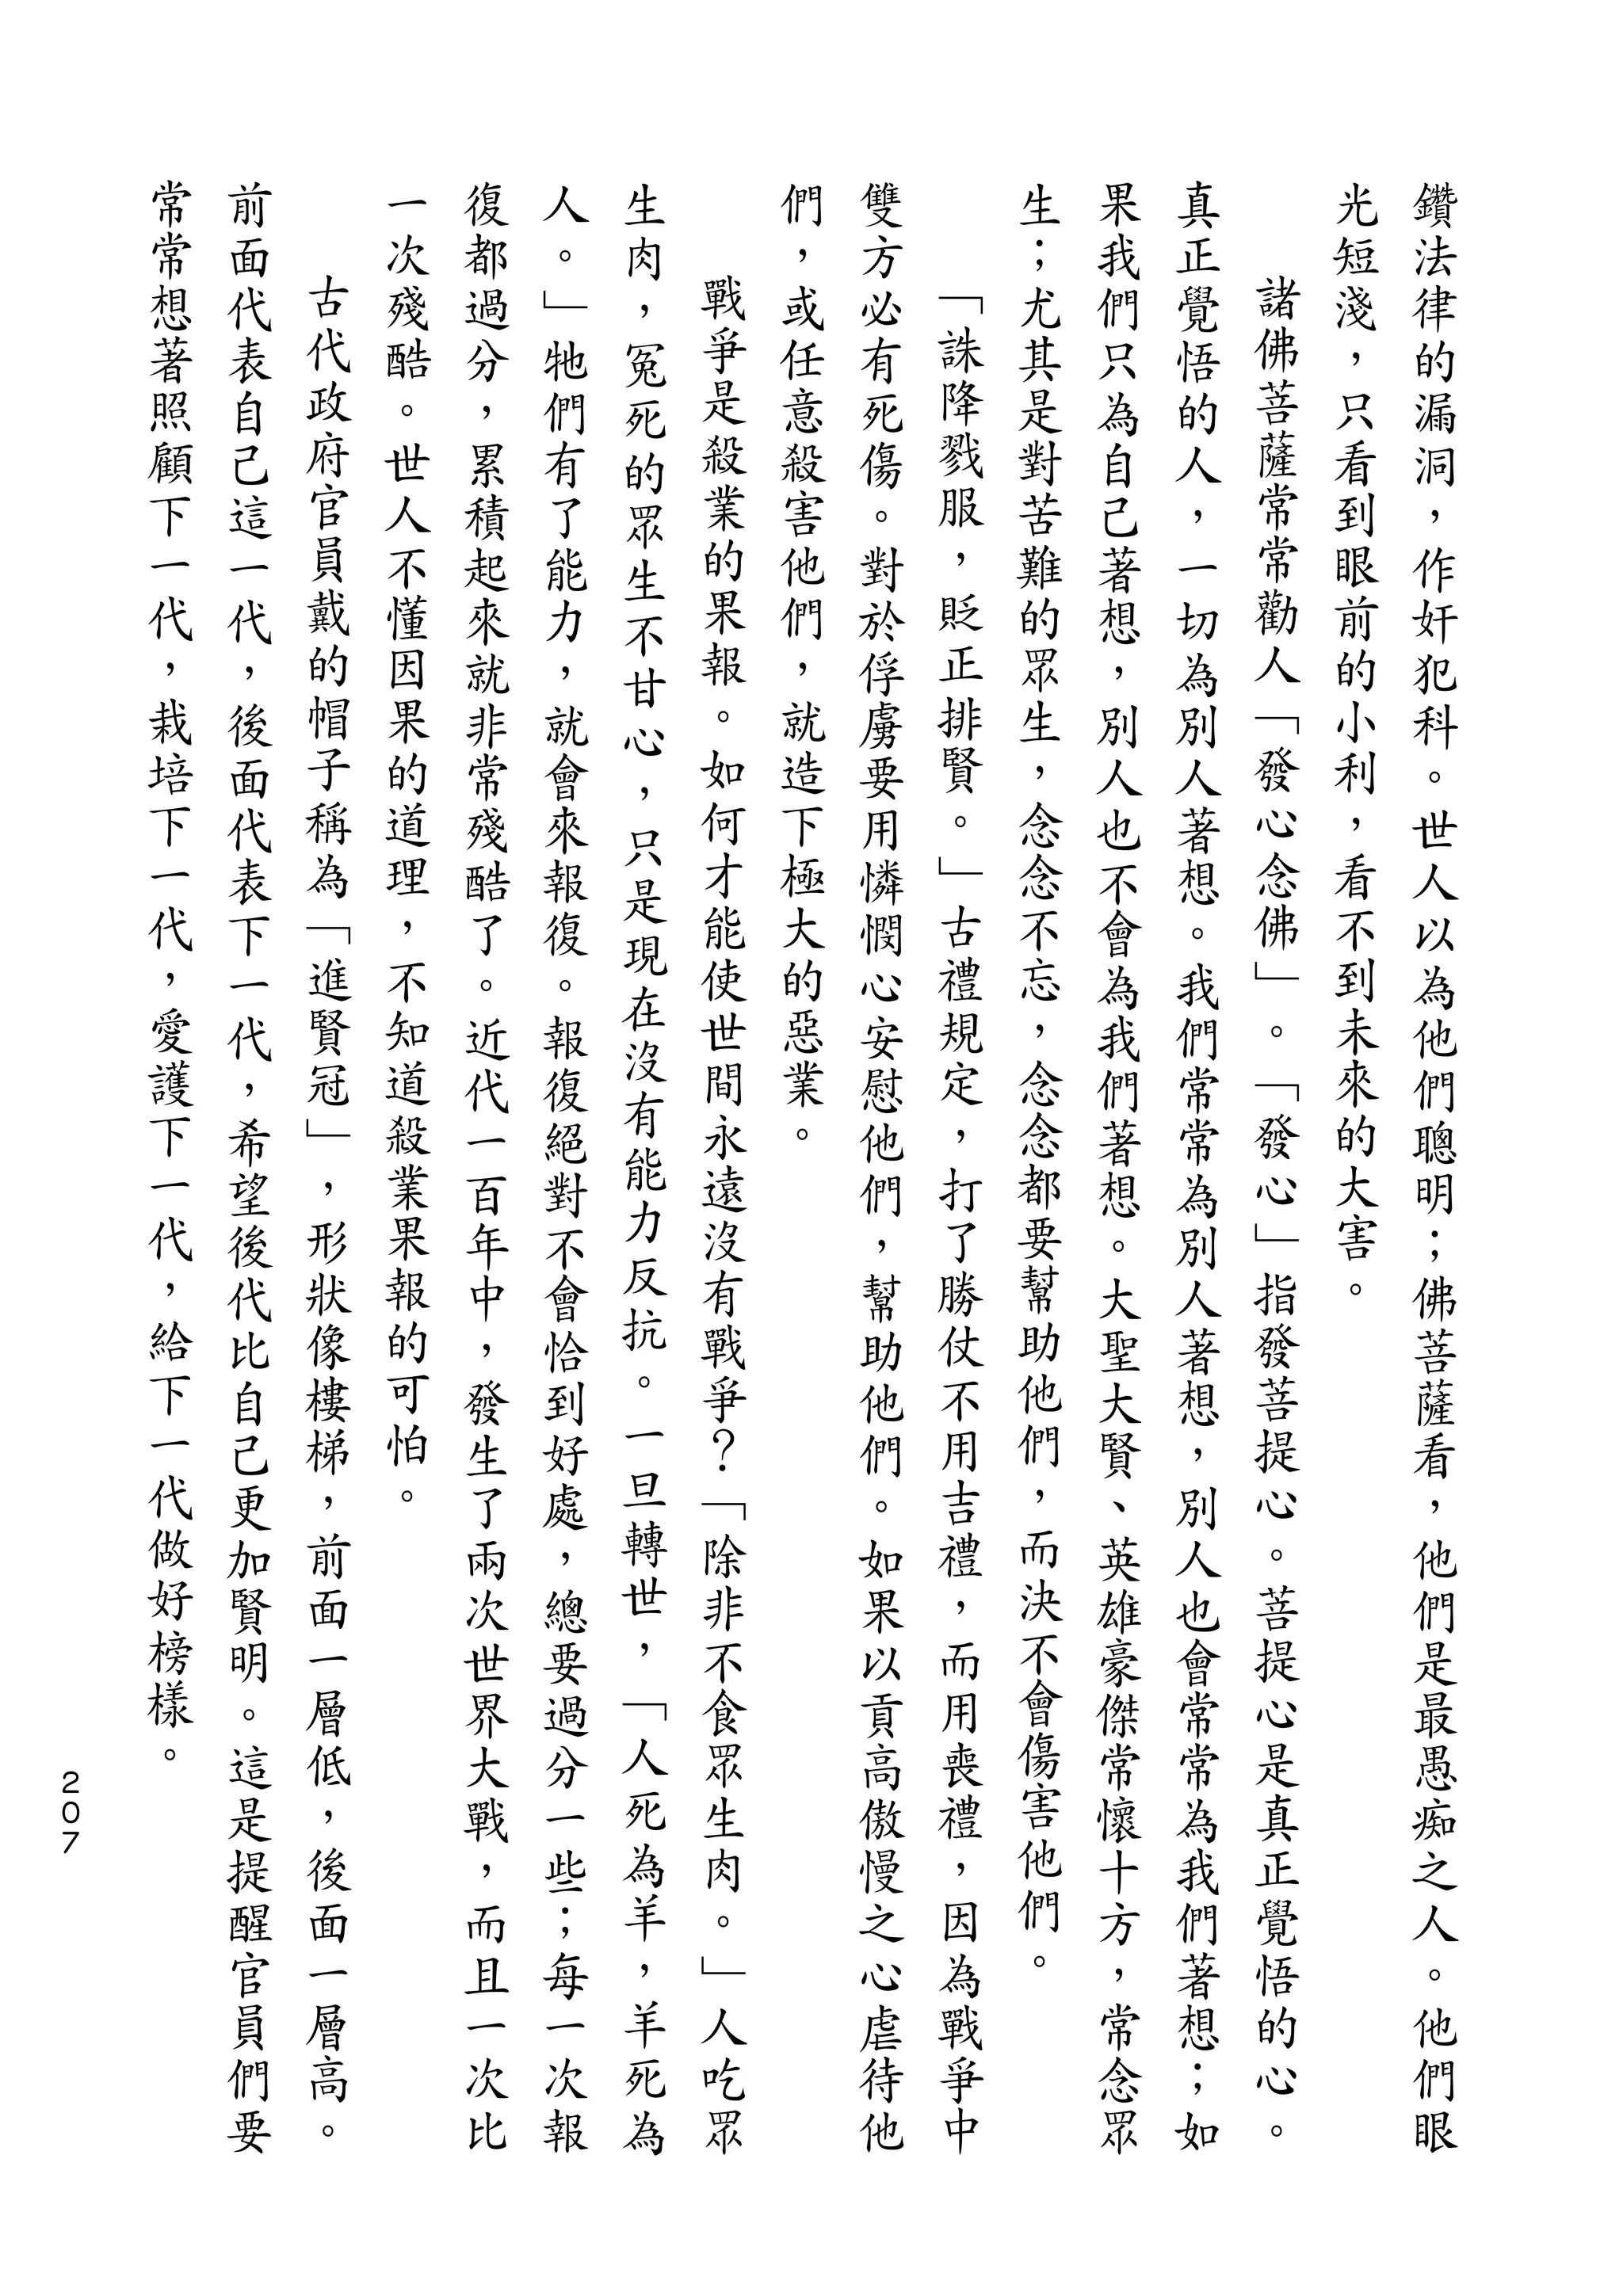 鑽法律的漏洞，作奸犯科。世人以為他們聰明；佛菩薩看，他們是最愚痴之人。他們眼
光短淺，只看到眼前的小利，看不到未來的大害。
諸佛菩薩常常勸人「發心念佛」。「發心」指發菩提心。菩提心是真正覺悟的心。
真正覺悟的人，一切為別人著想。我們常常為別人著想，別人也會常常為我們著想；如
果我們只為自己著想，別人也不會為我們著想。大聖大賢、英雄豪傑常懷十方，常念眾
生；尤其是對苦難的眾生，念念不忘，念念都要幫助他們，而決不會傷害他們。
「誅降戮服，貶正排賢。」古禮規定，打了勝仗不用吉禮，而用喪禮，因為戰爭中
雙方必有死傷。對於俘虜要用憐憫心安慰他們，幫助他們。如果以貢高傲慢之心虐待他
們，或任意殺害他們，就造下極大的惡業。
戰爭是殺業的果報。如何才能使世間永遠沒有戰爭？「除非不食眾生肉。」人吃眾
生肉，冤死的眾生不甘心，只是現在沒有能力反抗。一旦轉世，「人死為羊，羊死為
人。」牠們有了能力，就會來報復。報復絕對不會恰到好處，總要過分一些；每一次報
復都過分，累積起來就非常殘酷了。近代一百年中，發生了兩次世界大戰，而且一次比
一次殘酷。世人不懂因果的道理，不知道殺業果報的可怕。
古代政府官員戴的帽子稱為「進賢冠」，形狀像樓梯，前面一層低，後面一層高。
前面代表自己這一代，後面代表下一代，希望後代比自己更加賢明。這是提醒官員們要
常常想著照顧下一代，栽培下一代，愛護下一代，給下一代做好榜樣。
207